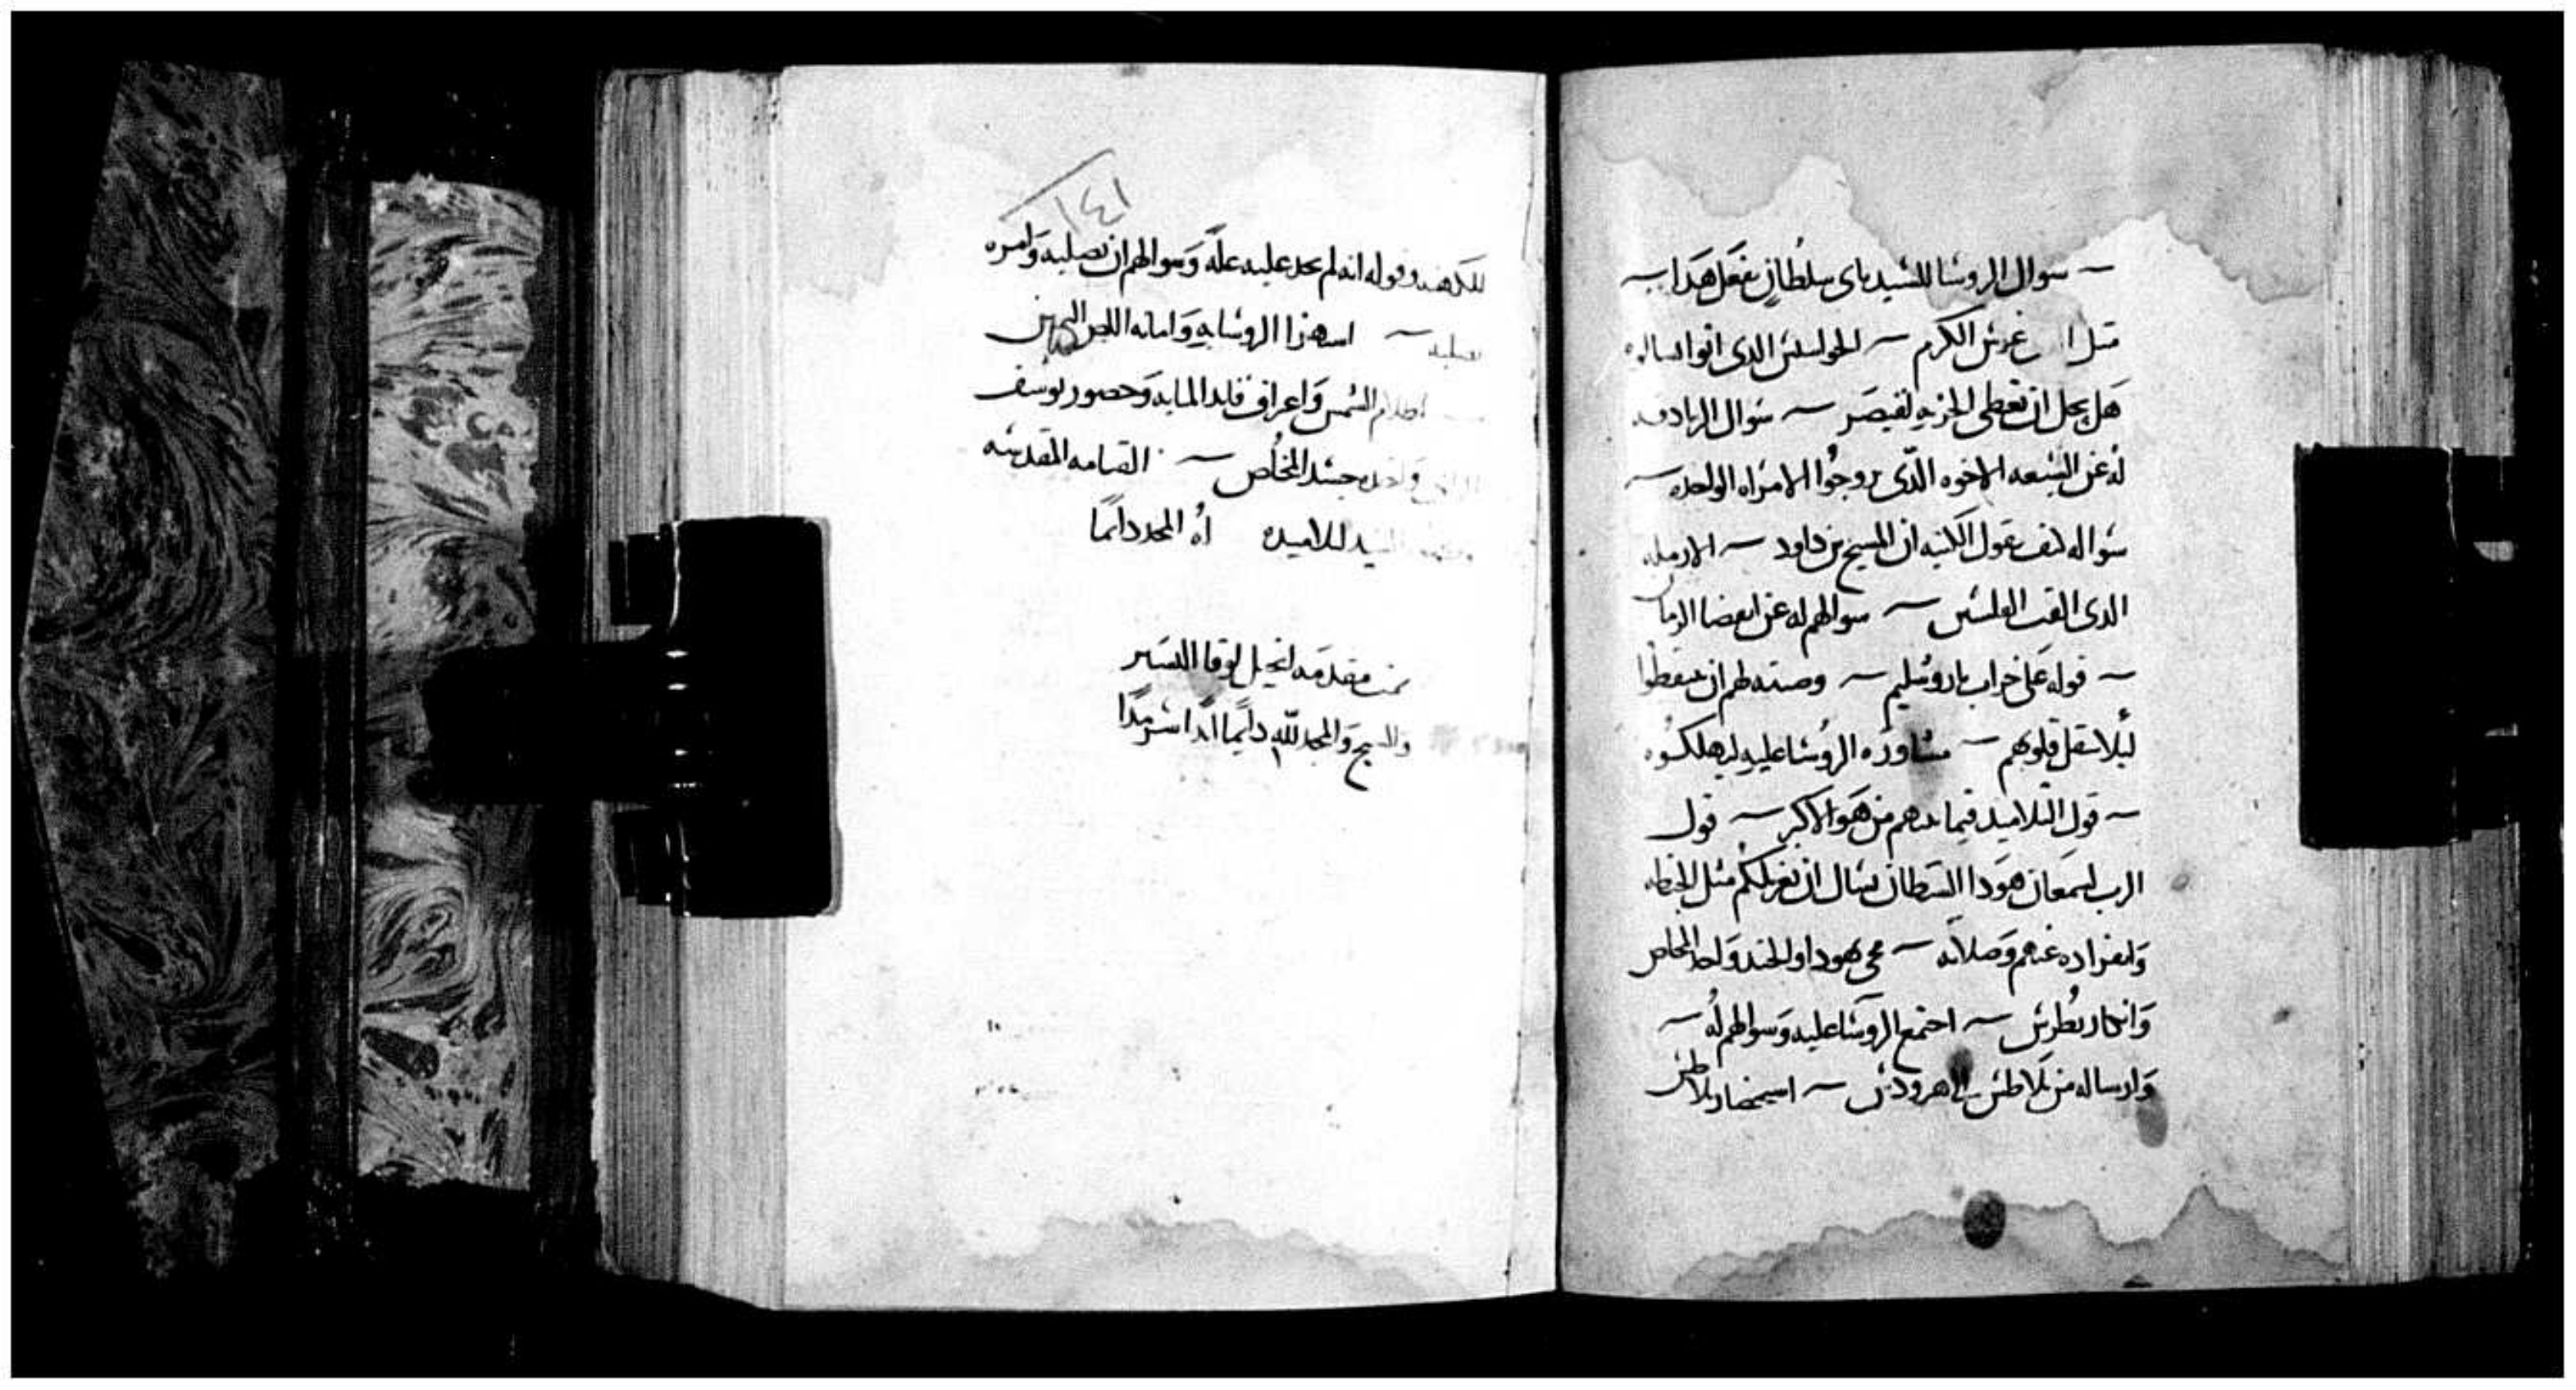 سوال الروسا للسيد باى سلطان يفعل هدا
مثل غرس الكرم الجواسيس الدى اتوا ليسالوه
هل يحل ان تعطى الجزيه لقيصر سوال الزنادقه
له عن السبعه الاخوه الدى تزوجوا الامراه الواحده
سواله كيف تقول الكتبه ان المسيح بن داود الارمله
الدى القت الفلسين سوالهم له عن انقضا الزمان
قوله على خراب ياروسليم وصيته لهم ان يتيقظوا
ليلا تثقل قلوبهم مشاوره الروسا عليه ليهلكوه
قول التلاميد فيما بينهم من هو الاكبر قول
الرب لسمعان هودا الشيطان يسال ان يغربلكم مثل الحنطه
وانفراده عنهم وصلاته مجى يهودا والجند واخد المخلص
وانكار بطرس اجتمع الروسا عليه وسوالهم له
وارساله من بيلاطس الى هيرودس استحضار بيلاطس
١٤١
للكهنه وقوله انه لم يجد عليه عله وسوالهم ان يصلبه وامره
بصلبه استهزا الروسا به وامانه اللص اليمين
اظلام الشمس واعراف قايد المايه وحضور يوسف
واخده جسد المخلص القيامه المقدسه
السيد لتلاميده له المجد دايما
تمت مقدمه انجيل لوقا البشير
والسبح والمجد لله دايما ابدا سرمدا